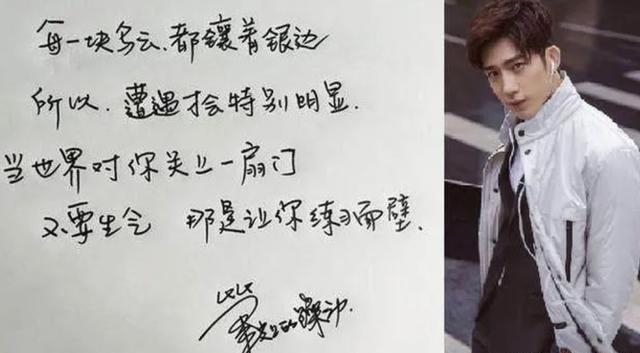 每一块乌云，都镶着银边
所以，遭遇才会特别明显.
当世界对你关上一扇门
不要生气 那是让你练习面壁.